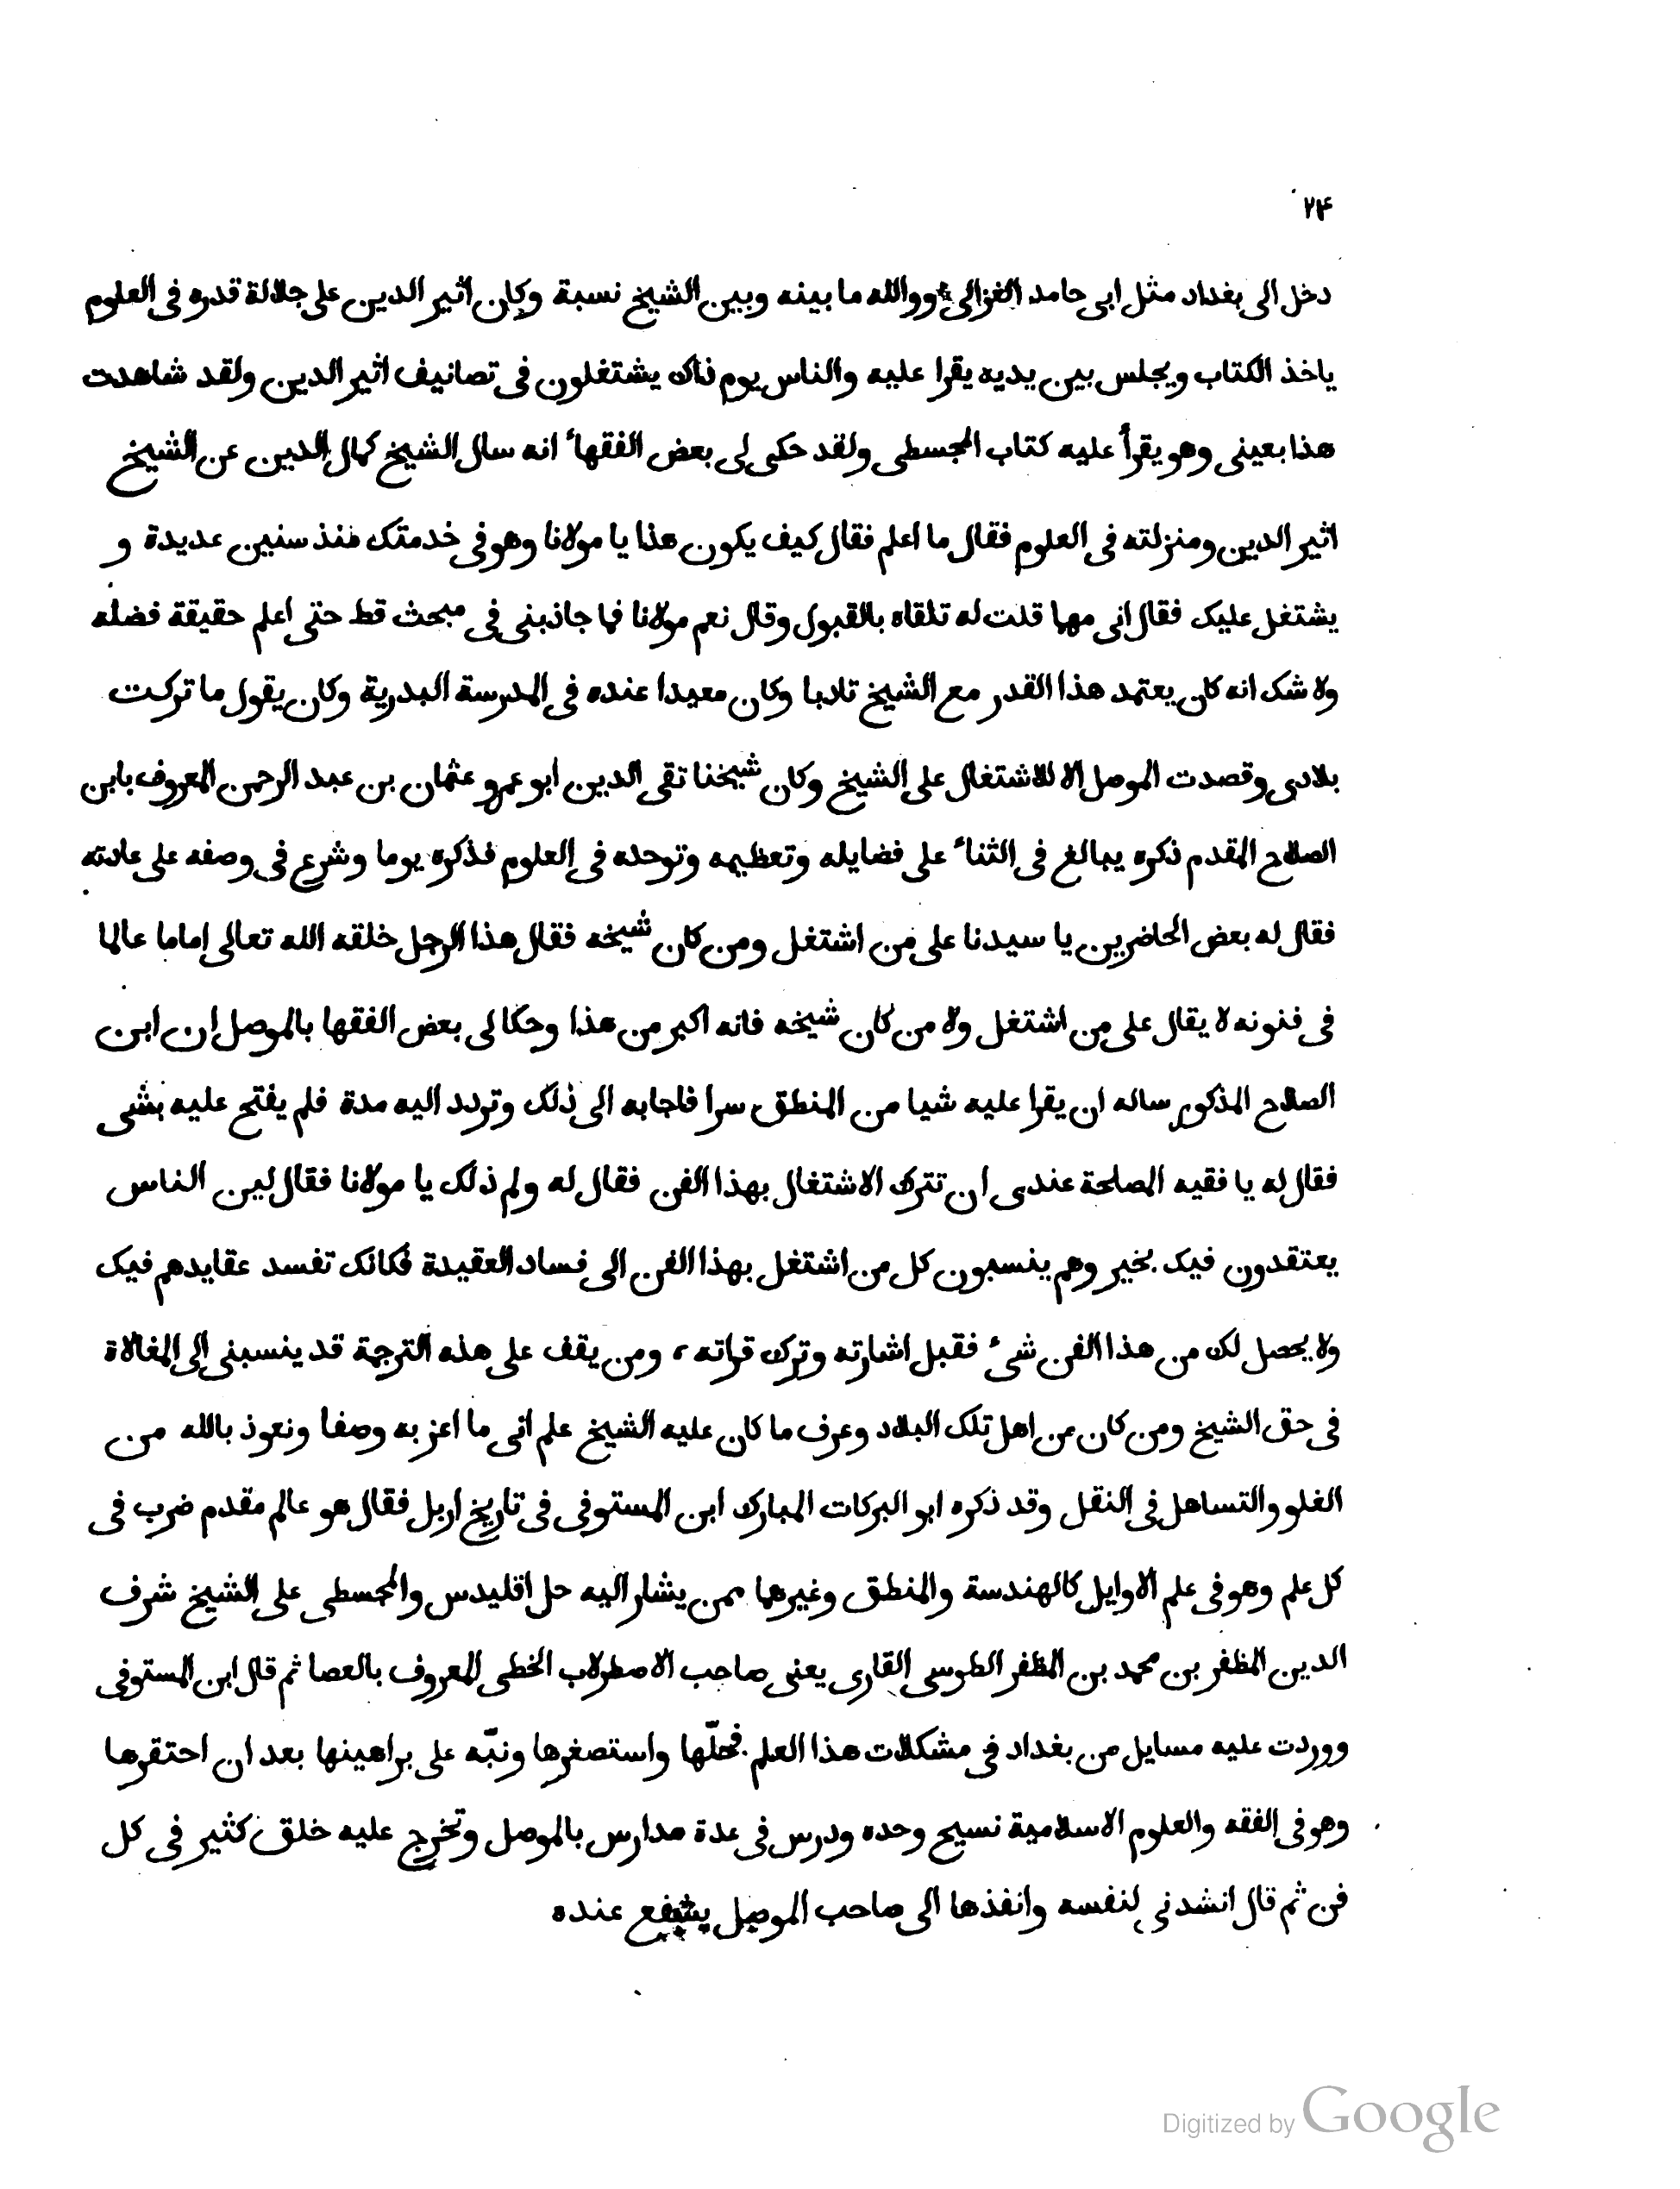 ۲۴
دخل الى بغداد مثل ابى حامد الغزالى ووالله ما بينه وبين الشيخ نسبة وكان اثير الدين على جلالة قدره فى العلوم
ياخذ الكتاب ويجلس بين يديه يقرا عليه والناس يوم ذاك يشتغلون فى تصانيف اثير الدين ولقد شاهدت
هذا بعينى وهو يقرأ عليه كتاب المجسطى ولقد حكى لى بعض الفقهأ انه سال الشيخ كمال الدين عن الشيخ
اثير الدين ومنزلته فى العلوم فقال ما اعلم فقال كيف يكون هذا يا مولانا وهو فى خدمتك منذ سنين عديدة و
يشتغل عليك فقال انى مهما قلت له تلقاه بالقبول وقال نعم مولانا فما جاذبنى فى مبحث قط حتى اعلم حقيقة فضله
ولا شك انه كان يعتمد هذا القدر مع الشيخ تادبا وكان معيدا عنده فى المدرسة البدرية وكان يقول ما تركت
بلادى وقصدت الموصل الا للاشتغال على الشيخ وكان شيخنا تقى الدين ابو عمرو عثمان بن عبد الرحمن المعروف بابن
الصلاح المقدم ذكره يبالغ فى الثنأ على فضايله وتعظيمه وتوحده فى العلوم فذكره يوما وشرع فى وصفه على عادته
فقال له بعض الحاضرين يا سيدنا على من اشتغل ومن كان شيخه فقال هذا الرجل خلقه الله تعالى إماما عالما
فى فنونه لا يقال على من اشتغل ولا من كان شيخه فانه اكبر من هذا وحكا لى بعض الفقها بالموصل ان ابن
الصلاح المذكور ساله ان يقرا عليه شيا من المنطق سرا فاجابه الى ذلك وتردد اليه مدة فلم يفتح عليه بشى
فقال له يا فقيه المصلحة عندى ان تترك الاشتغال بهذا الفن فقال له ولم ذلك يا مولانا فقال لين الناس
يعتقدون فيك بخير وهم ينسبون كل من اشتغل بهذا الفن الى فساد العقيدة فكانك تفسد عقايدهم فيك
ولا يحصل لك من هذا الفن شئ فقبل اشارته وترك قراته، ومن يقف على هذه الترجمة قد ينسبنى الى المغالاة
فى حق الشيخ ومن كان من اهل تلك البلاد وعرف ما كان عليه الشيخ علم انى ما اعز به وصفا ونعوذ بالله من
الغلو والتساهل فى النقل وقد ذكره ابو البركات المبارك ابن المستوفى فى تاريخ اربل فقال هو عالم مقدم ضرب فى
كل علم وهو فى علم الاوايل كالهندسة والمنطق وغيرهما ممن يشار اليه حل اقليدس والمجسطى على الشيخ شرف
الدين المظفر بن محمد بن المظفر الطوسى القارى يعنى صاحب الاصطرلاب الخطى المعروف بالعصا ثم قال ابن المستوفى
ووردت عليه مسايل من بغداد فى مشكلات هذا العلم فحلّها واستصغرها ونبّه على براهينها بعد ان احتقرها
وهو فى الفقه والعلوم الاسلامية نسيج وحده ودرس فى عدة مدارس بالموصل وتخرج عليه خلق كثير فى كل
فن ثم قال انشدنى لنفسه وانفذها الى صاحب الموصل يشفع عنده
Digitized by Google